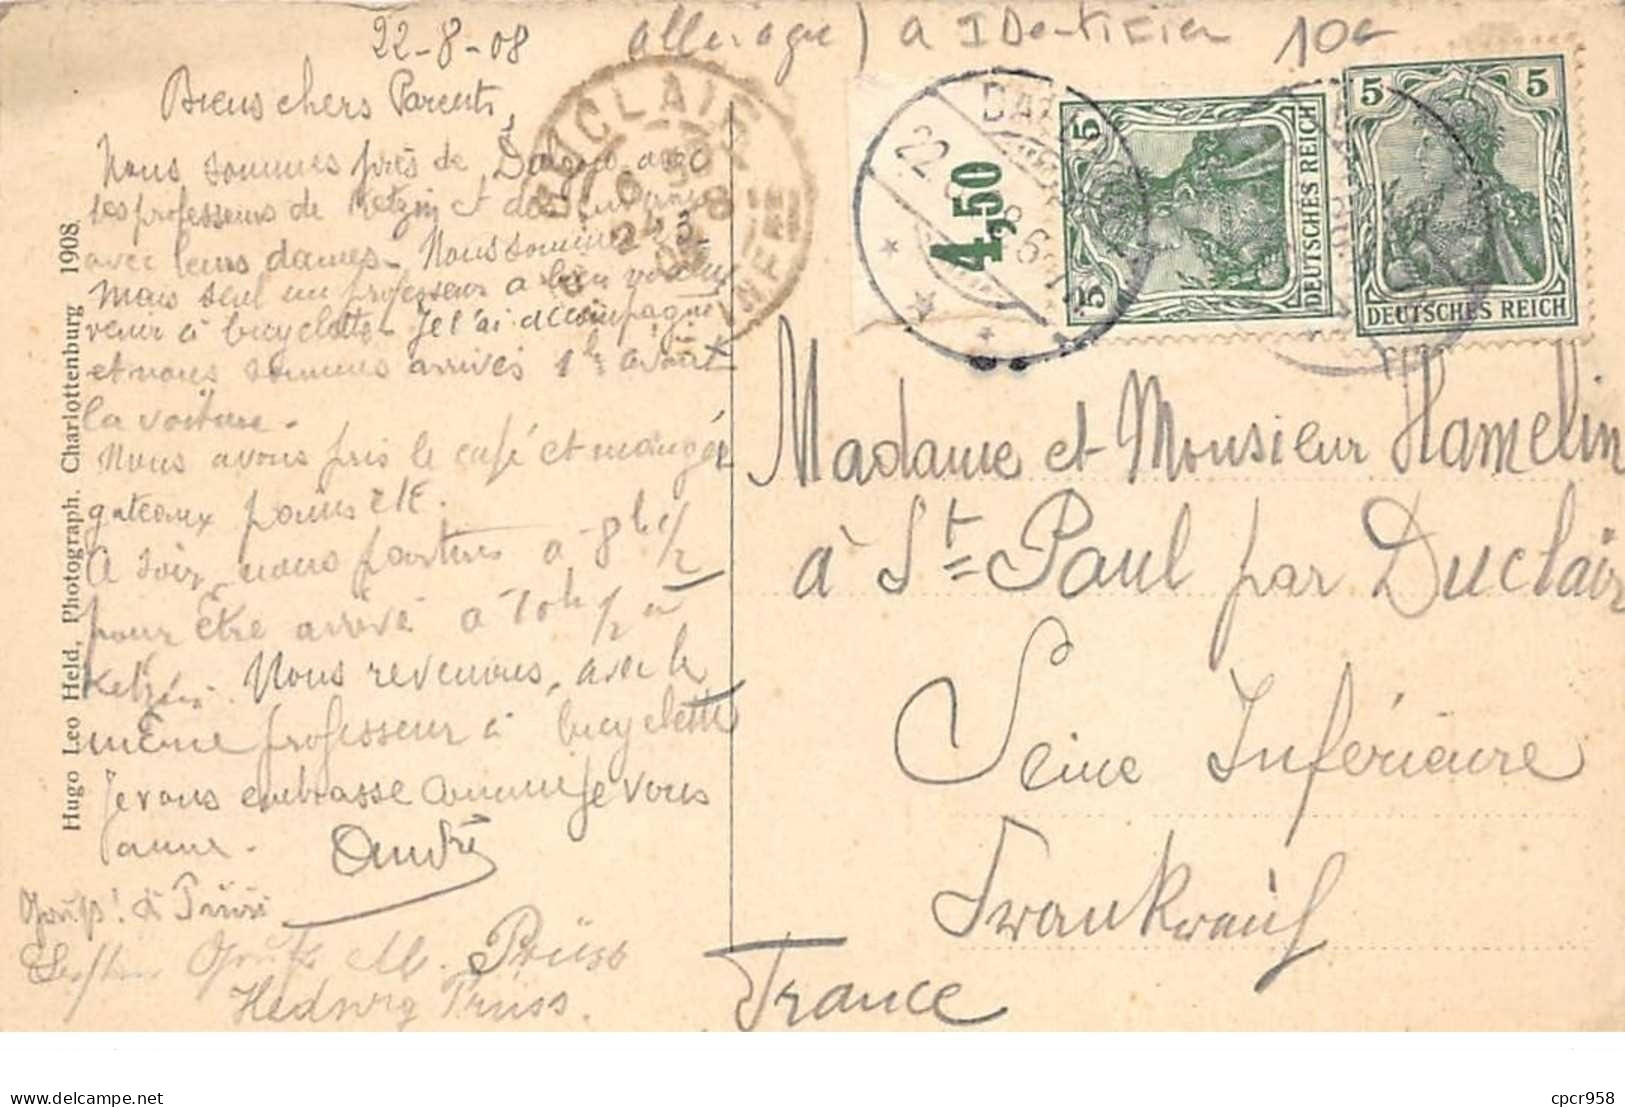 22-8-08
à IDentifier 10e
Biens chers Parents,
Nous sommes près de
les professeurs de Ketzin et des
avec leurs dames. Nous sommes
Mais seul un professeur a bien voulu
venir à bicyclette. Je l'ai accompagné
et nous sommes arrivés 1h avant
la voiture.
Nous avons pris le café et mangé
gateaux pains etc.
A soir, nous partons à 8h 1/2
pour être arrivé à 10h 1/2 à
Ketzin. Nous revenons, avec le
même professeur à bicyclette
Je vous embrasse comme je vous
aime.
André
Gruß!
Gruß M. Prüss
Hedwig Prüss.
Hugo Leo Held, Photograph, Charlottenburg 1908.
DUCLAIR
22.
4,50
5 5
DEUTSCHES REICH
5 5
DEUTSCHES REICH
Madame et Monsieur Hamelin
à St= Paul par Duclair
Seine Inférieure
Frankreich
France
delcampe.net
cpcr958